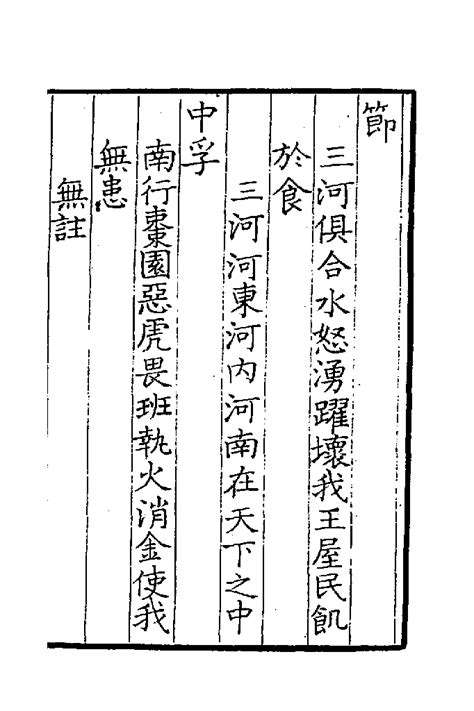 節
三河俱合水怒湧躍壞我王屋民飢
於食
三河河東河內河南在天下之中
中孚
南行棗園惡虎畏班執火消金使我
無患
無註